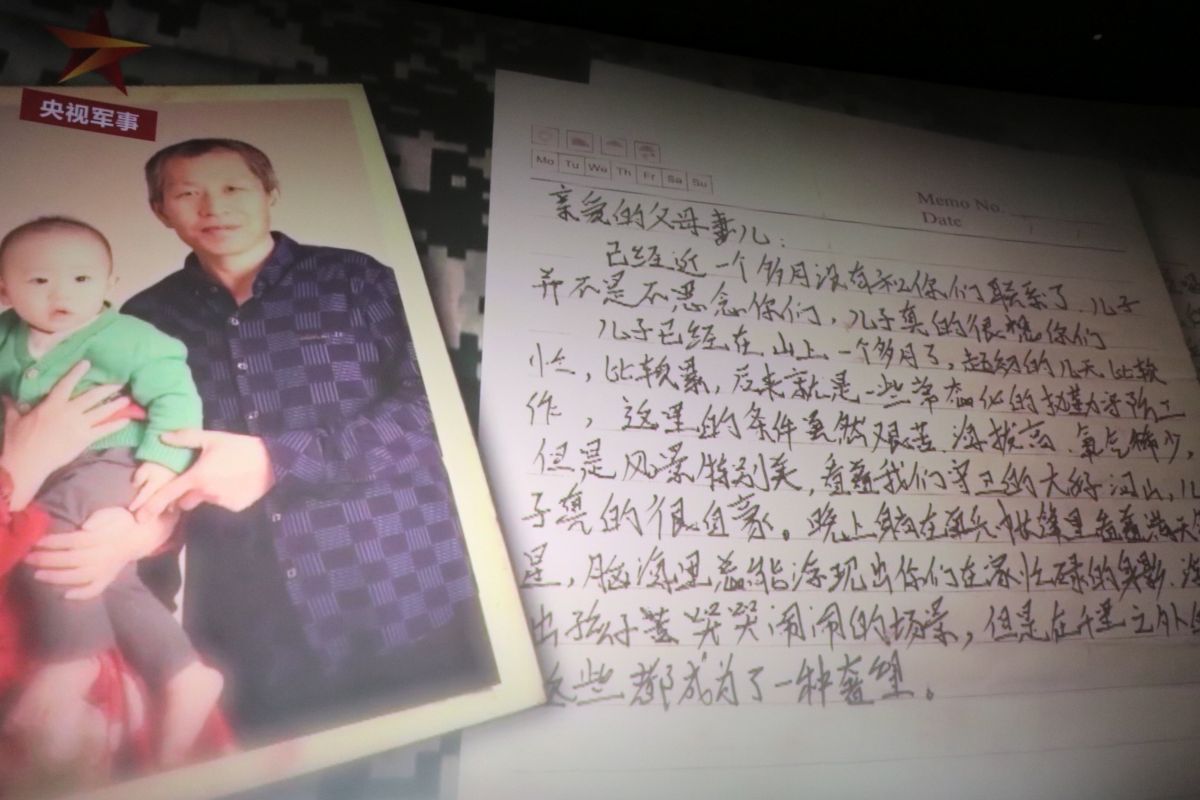 央视军事
Mo Tu We Th Fr Sa Su
Memo No.
Date
亲爱的父母妻儿：
已经近一个多月没有和你们联系了，儿子
并不是不思念你们，儿子真的很想你们
儿子已经在山上一个多月了，起初的几天比较
忙，比较累，后来就是一些常态化的执勤
作，这里的条件虽然艰苦，海拔高，氧气稀少，
但是风景特别美，看着我们守卫的大好河山，儿
子真的很自豪。晚上躺在 帐篷里看着满天
星，脑海里总能浮现出你们在家忙碌的身影，
出孩子 哭哭闹闹的场景，但是在千里之外
这些都成为了一种奢望。